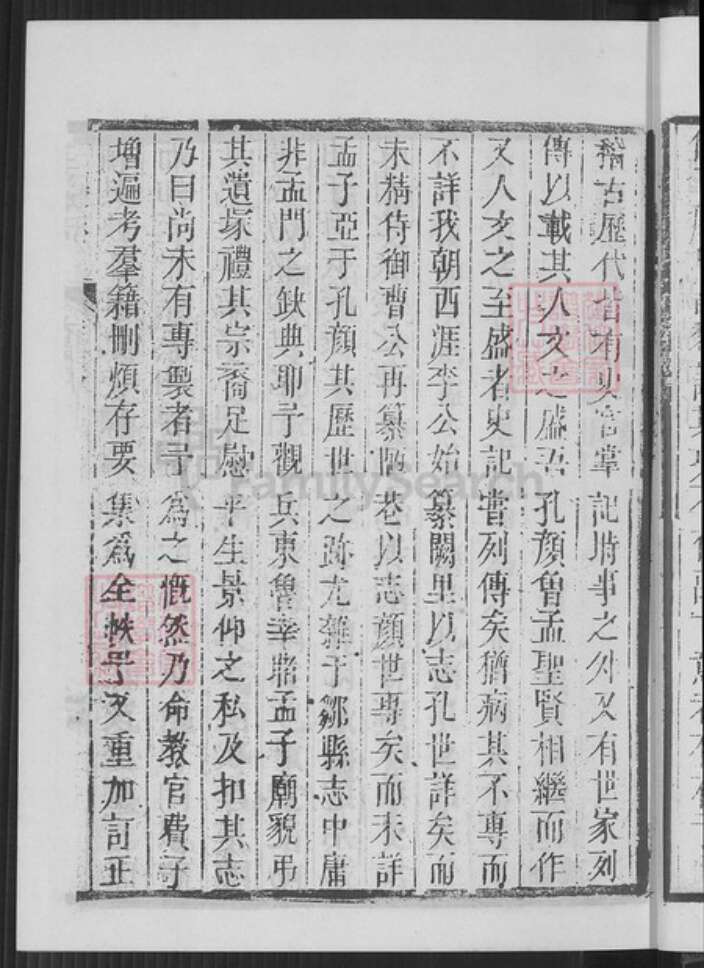 稽古歷代皆有史官掌記時事之外又有世家列
傳以載其人文之盛吾孔顏曾孟聖賢相繼而作
又人文之至盛者史記嘗列傳矣猶病其不專而
不詳我朝西涯李公始纂闕里以志孔世詳矣而
未精侍御曹公再纂陋巷以志顏世專矣而未詳
孟子亞于孔顏其歷世之跡尤雜于鄒縣志中庸
非孟門之缺典耶予觀兵東魯幸睹孟子廟貌弔
其遺塚禮其宗裔足慰平生景仰之私及扣其志
乃曰尚未有專製者予為之慨然乃命教官費子
增遍考羣籍刪煩存要集為全帙予又重加訂正
FamilySearch